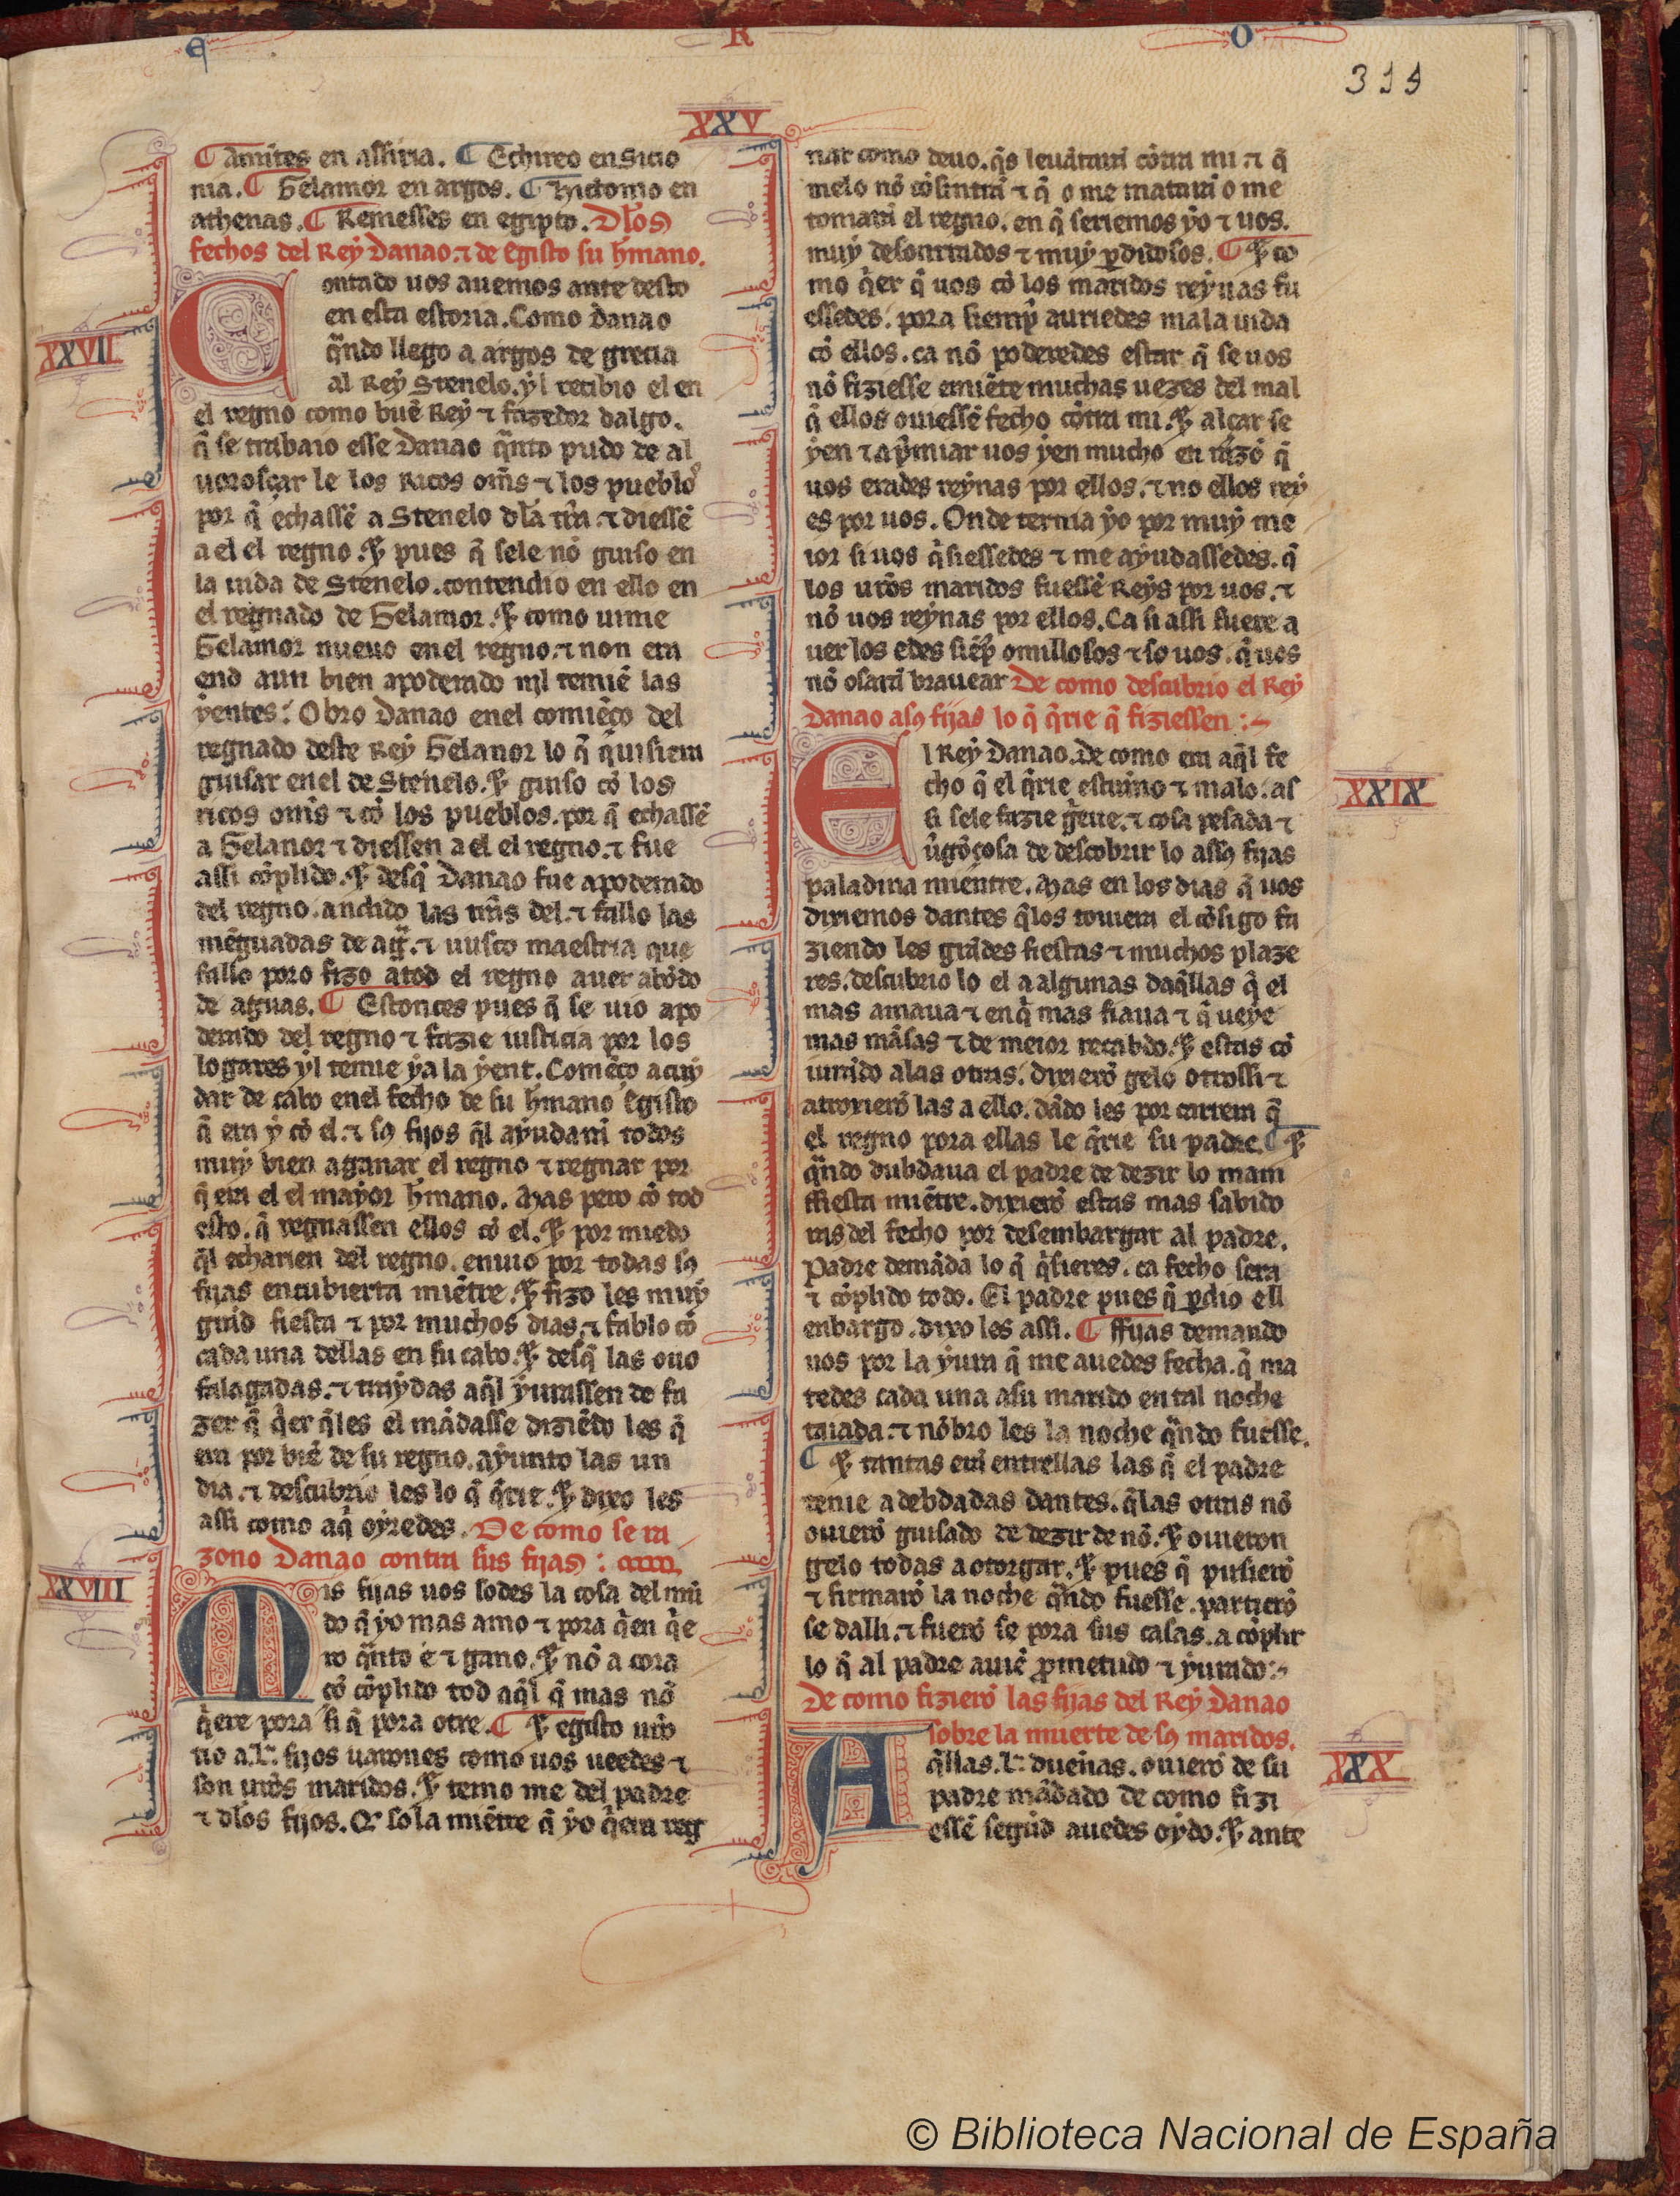 R
O
315
XXV
¶ amites en assiria. ¶ Echireo en Sicio
nia. ¶ Gelamor en argos. ¶ Hictonio en
athenas. ¶ Remesses en egipto. Dlos
fechos del Rey Danao. ⁊ de Egisto su hmano.
XXVII
Contado uos auemos ante desto
en esta estoria. Como Danao
q̃ndo llego a argos de grecia
al Rey Stenelo. yl recibio el en
el regno como buẽ Rey ⁊ fazedor dalgo.
q̃ se trabaio esse Danao q̃nto pudo de al
uoroſçar le los Ricos om̃s ⁊ los pueblos
por q̃ echassẽ a Stenelo dla tr̃ra. ⁊ diessẽ
a el el regno. ⁊ pues q̃ sele nõ guiso en
la uida de Stenelo. contendio en ello en
el regnado de Gelamor. ⁊ como uinie
Gelamor nueuo en el regno. ⁊ non era
end aun bien apoderado nil temiẽ las
yentes. Obro Danao enel comiẽço del
regnado deste Rey Gelanor lo q̃ quisiera
guisar en el de Stenelo. ⁊ guiso cõ los
ricos om̃s ⁊ cõ los pueblos. por q̃ echassẽ
a Gelanor ⁊ diessen a el el regno. ⁊ fue
assi cõplido. ⁊ desq̃ Danao fue apoderado
del regno. andido las tr̃ras del. ⁊ fallo las
mẽguadas de ag̃. ⁊ uusco maestria que
fallo poro fizo a tod el regno auer abõdo
de aguas. ¶ Estonces pues q̃ se uio apo
derado del regno ⁊ fazie iusticia por los
logares yl temie ya la yent. Comẽço a cuy
dar de cabo enel fecho de su hmano Egisto
q̃ era y cõ el. ⁊ sꝯ fijos q̃l ayudarã todos
muy bien a ganar el regno ⁊ regnar por
q̃ era el el mayor hmano. Mas pero cõ tod
esto. q̃ regnassen ellos cõ el. ⁊ por miedo
q̃l echarien del regno. enuio por todas sꝯ
fijas encubierta miẽtre. ⁊ fizo les muy
grãd fiesta ⁊ por muchos dias. ⁊ fablo cõ
cada una dellas en su cabo. ⁊ desq̃ las ouo
falagadas. ⁊ traydas aq̃l yurassen de fa
zer q̃ q̃er q̃les el mãdasse diziẽdo les q̃
era por biẽ de su regno. ayunto las un
dia. ⁊ descubrio les lo q̃ q̃rie. ⁊ dixo les
assi como aq̃ oyredes. De como se ra
zono Danao contra sus fijas:
XXVIII
Mis fijas uos sodes la cosa del mũ
do q̃ yo mas amo ⁊ pora q̃en q̃e
ro q̃nto e ⁊ gano. ⁊ nõ a cora
çõ cõplido tod aq̃l q̃ mas nõ
q̃ere pora si q̃ pora otre. ¶ ⁊ egisto uro
tio a .L. fijos uarones como uos ueedes ⁊
son uros maridos. ⁊ temo me del padre
⁊ dlos fijos. Qr sola miẽtre q̃ yo q̃era reg
nar como deuo. q̃s leuãtarã cõtra mi ⁊ q̃
melo nõ cõsintrã ⁊ q̃ o me matarã o me
tomarã el regno. en q̃ seriemos yo ⁊ uos.
muy desonrrados ⁊ muy ꝑdidosos. ¶ ⁊ co
mo q̃er q̃ uos cõ los maridos reynas fu
essedes. pora siempr̃ auriedes mala uida
cõ ellos. ca nõ poderedes estar q̃ se uos
nõ fiziesse emiẽte muchas uezes del mal
q̃ ellos ouiessẽ fecho cõtra mi. ⁊ alçar se
yen ⁊ apr̃miar uos yen mucho en razõ q̃
uos erades reynas por ellos. ⁊ no ellos rey
es por uos. Onde ternia yo por muy me
ior si uos q̃siessedes ⁊ me ayudassedes. q̃
los uros maridos fuessẽ Reys por uos. ⁊
nõ uos reynas por ellos. Ca si assi fuere a
uer los edes siẽpr̃ omillosos ⁊ so uos. q̃ uos
nõ osarã brauear De como descubrio el Rey
Danao a sꝯ fijas lo q̃ q̃rie q̃ fiziessen:~
XXIX
El Rey Danao. De como era aq̃l fe
cho q̃ el q̃rie estraño ⁊ malo. as
si sele fazie g̃ue. ⁊ cosa pesada ⁊
ũgõçosa de descobrir lo assꝯ fijas
paladina mientre. Mas en los dias q̃ uos
dixiemos dantes q̃los touiera el cõsigo fa
ziendo les grãdes fiestas ⁊ muchos plaze
res. descubrio lo el a algunas daq̃llas q̃ el
mas amaua ⁊ en q̃ mas fiaua ⁊ q̃ ueye
mas mãsas ⁊ de meior recabdo. ⁊ estas cõ
uirtiẽdo alas otras. dixierõ gelo otrossi ⁊
atroxierõ las a ello. dãdo les por carrera q̃
el regno pora ellas le q̃rie su padre. ¶ ⁊
q̃ndo dubdaua el padre de dezir lo mani
ffiesta miẽtre. dixierõ estas mas sabido
ras del fecho por desembargar al padre.
Padre demãda lo q̃ q̃sieres. ca fecho sera
⁊ cõplido todo. El padre pues q̃ ꝑdio ell
enbargo. dixo les assi. ¶ ffijas demando
uos por la yura q̃ me auedes fecha. q̃ ma
tedes cada una asu marido en tal noche
taiada. ⁊ nõbro les la noche q̃ndo fuesse.
¶ ⁊ tantas erã entrellas las q̃ el padre
tenie adebdadas dantes. q̃las otras nõ
ouierõ guisado de dezir de nõ. ⁊ ouieron
gelo todas a otorgar. ⁊ pues q̃ pusierõ
⁊ firmarõ la noche q̃ndo fuesse. partierõ
se dalli. ⁊ fuerõ se pora sus casas. a cõplir
lo q̃ al padre auiẽ ꝓmetudo ⁊ yurado:~
De como fizierõ las fijas del Rey Danao
sobre la muerte de sꝯ maridos.
XXX
Aq̃llas .L. dueñas. ouierõ de su
padre mãdado de como fizi
essẽ segũd auedes oydo. ⁊ ante
© Biblioteca Nacional de España